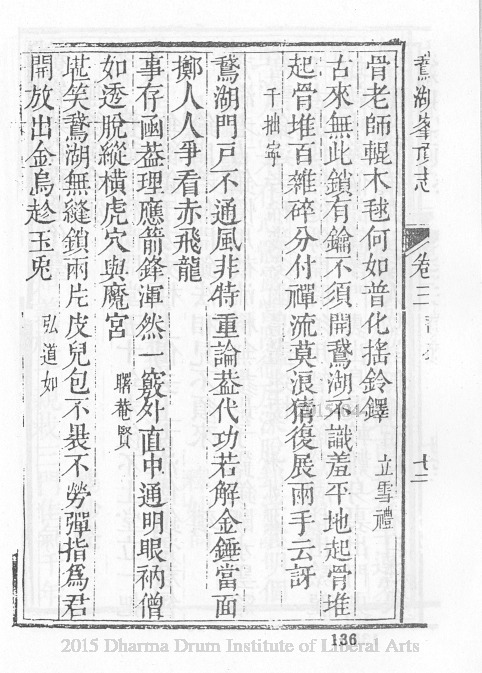 鵞湖峯頂志
卷三
十二
骨老師輥木毬何如普化搖鈴鐸 立雪禮
古來無此鎖有鑰不須開鵞湖不識羞平地起骨堆
起骨堆百雜碎分付禪流莫浪猜復展兩手云訝
千拙寧
鵞湖門戸不通風非特重論葢代功若解金錘當面
擲人人爭看赤飛龍
事存函葢理應箭鋒渾然一竅外直中通明眼衲僧
如透脫縱橫虎穴與魔宮 曙菴賢
堪笑鵞湖無縫鎖兩片皮兒包不褁不勞彈指爲君
開放出金烏趁玉兎 弘道如
136
2015 Dharma Drum Institute of Liberal Arts